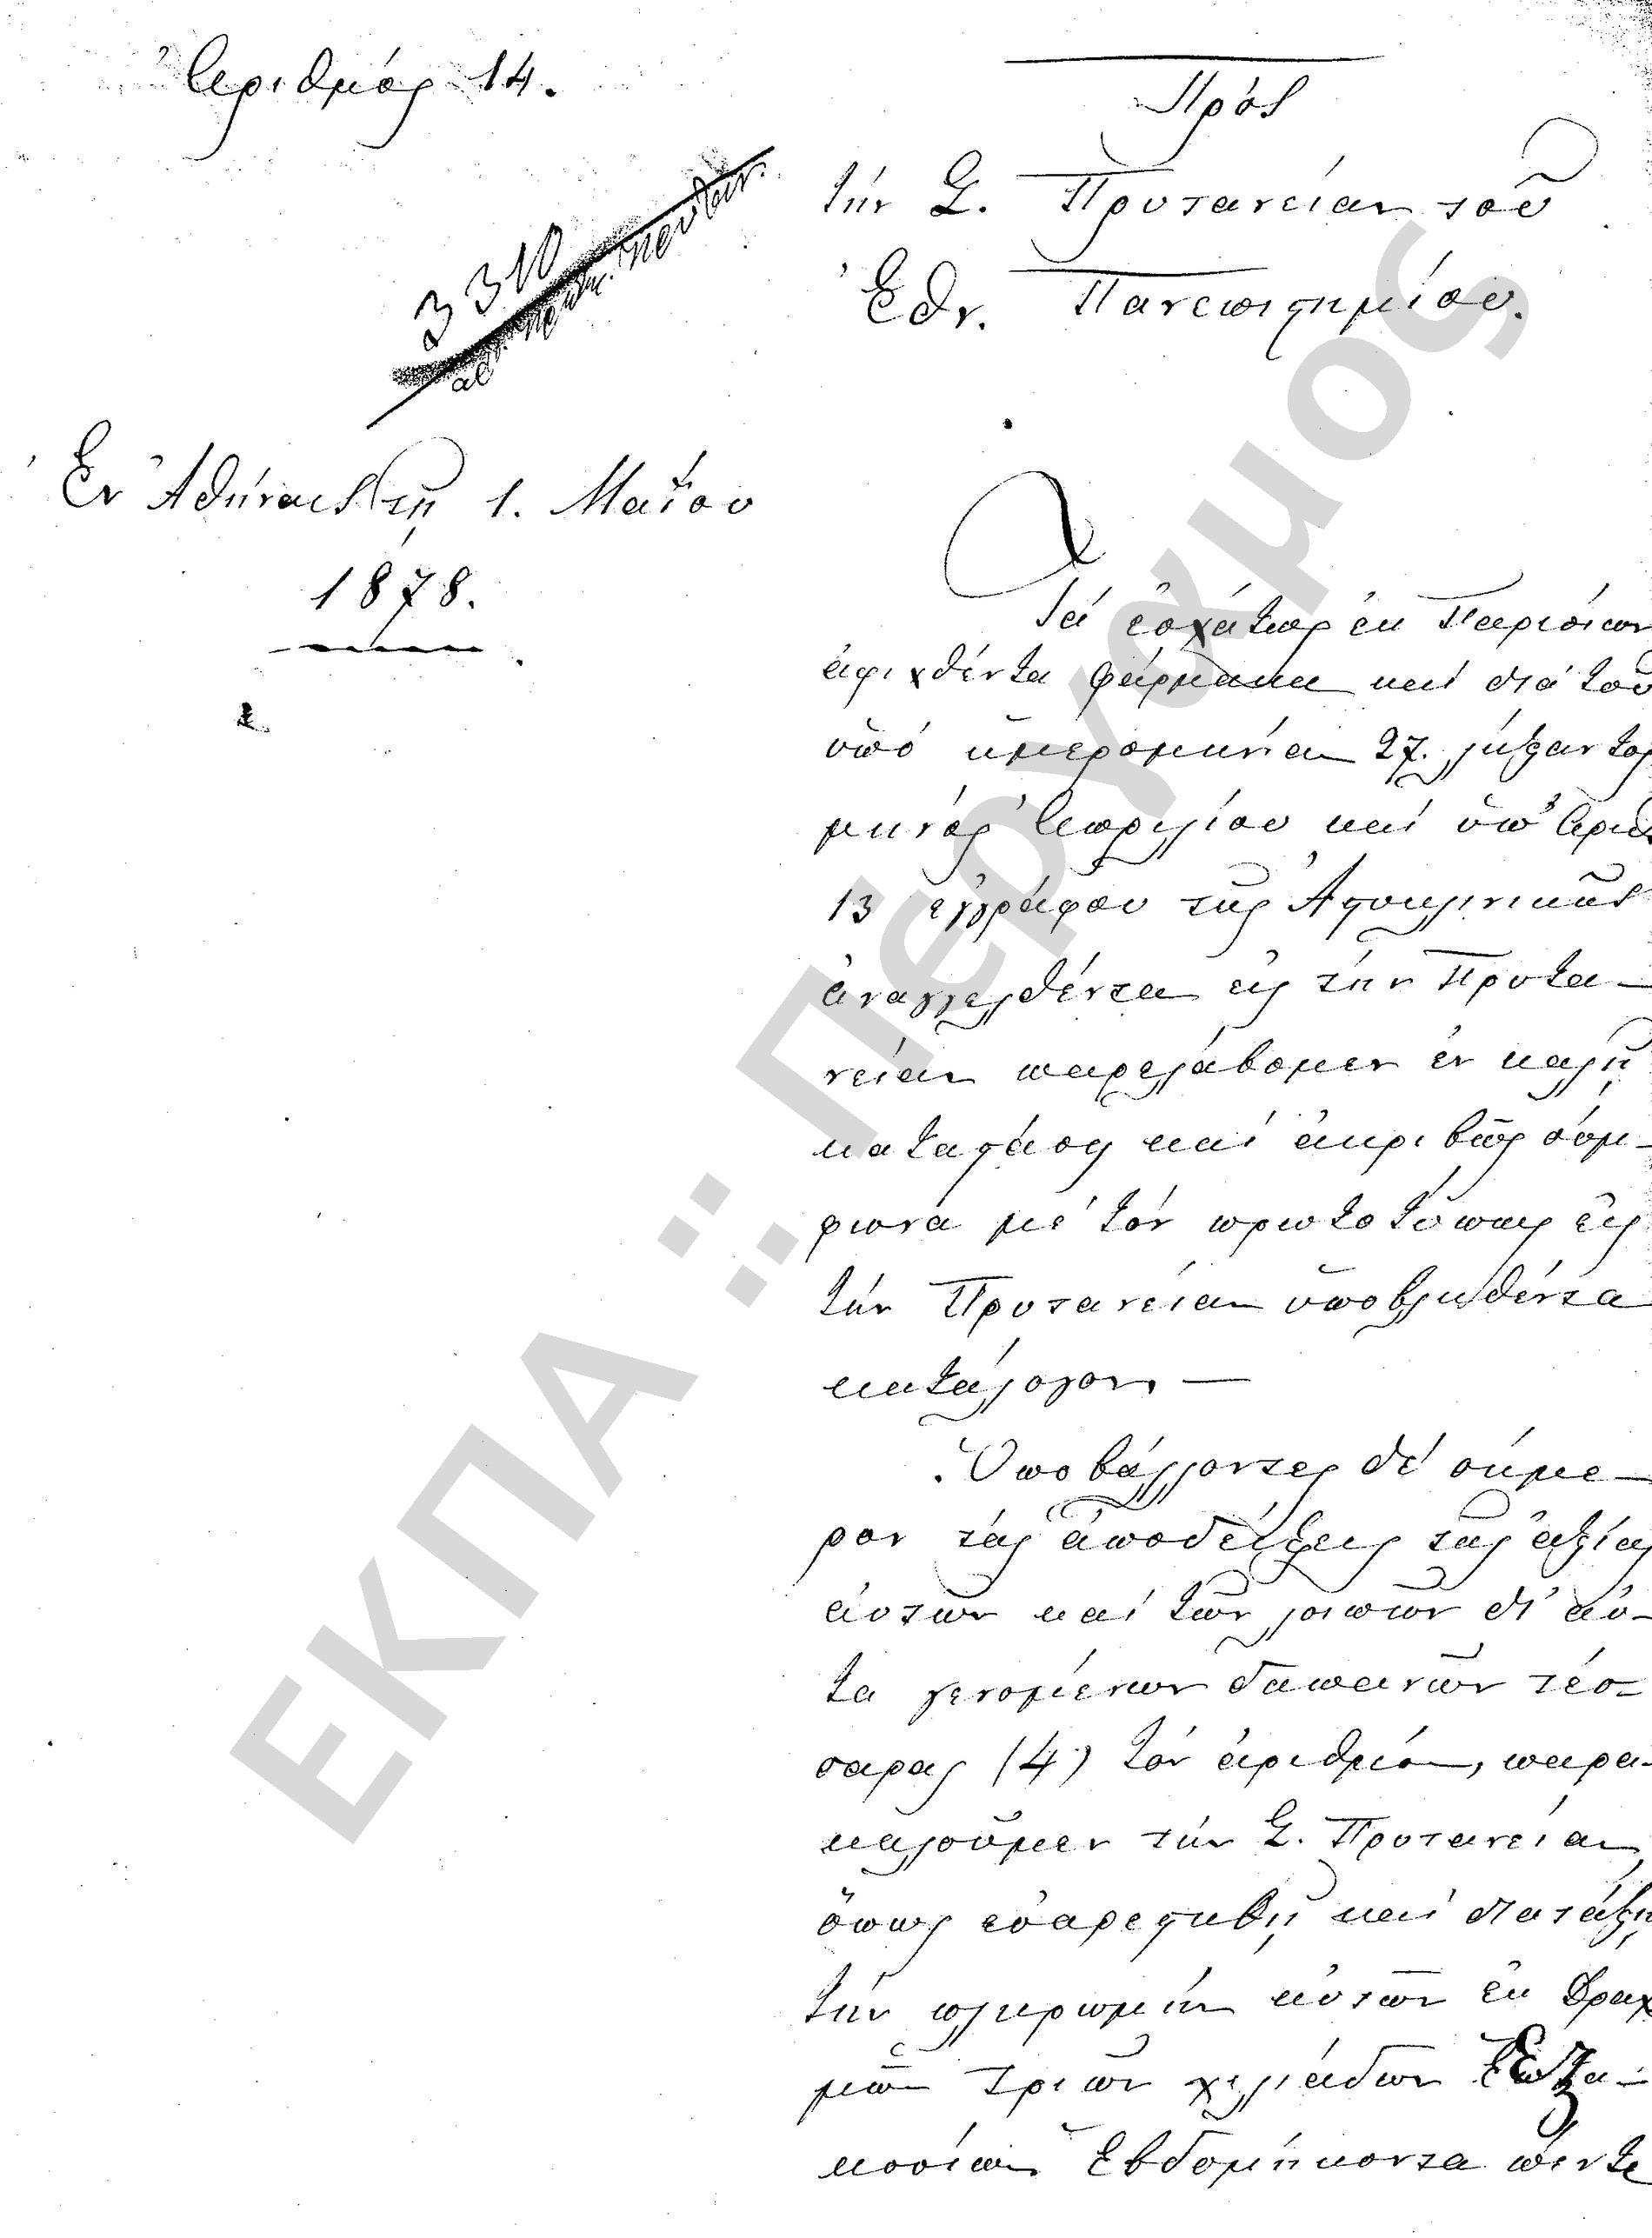 Ἀριθμός 14.
3310
Ἐν Ἀθήναις τῇ 1. Μαΐου
1878.
Πρός
τήν Σ. Πρυτανείαν τοῦ
Ἐθν. Πανεπιστημίου.
Τά ἐσχάτως ἐκ Παρισίων
ἀφιχθέντα φάρμακα καί διά τοῦ
ὑπό ἡμερομηνίαν 27. λήξαντος
μηνός Ἀπριλίου καί ὑπ' Ἀριθ
13 ἐγγράφου τῆς Ἀστυκλινικῆς
ἀναγγελθέντα εἰς τήν Πρυτα-
νείαν παρελάβομεν ἐν καλῇ
καταστάσῃ καί ἀκριβῶς σύμ-
φωνα μέ τόν πρωτοτύπως εἰς
τήν Πρυτανείαν ὑποβληθέντα
κατάλογον. —
Ὑποβάλλοντες δέ σήμε-
ρον τάς ἀποδείξεις τῆς ἀξίας
αὐτῶν καί τῶν λοιπῶν δι' αὐ-
τά γενομένων δαπανῶν τέσ-
σαρας (4) τόν ἀριθμόν, παρα-
καλοῦμεν τήν Σ. Πρυτανείαν,
ὅπως εὐαρεστηθῇ καί διατάξῃ
τήν πληρωμήν αὐτῶν ἐκ Δραχ
μῶν τριῶν χιλιάδων Ἑπτα-
κοσίων Ἑβδομήκοντα πέντε
ΕΚΠΑ :: Πέργαμος